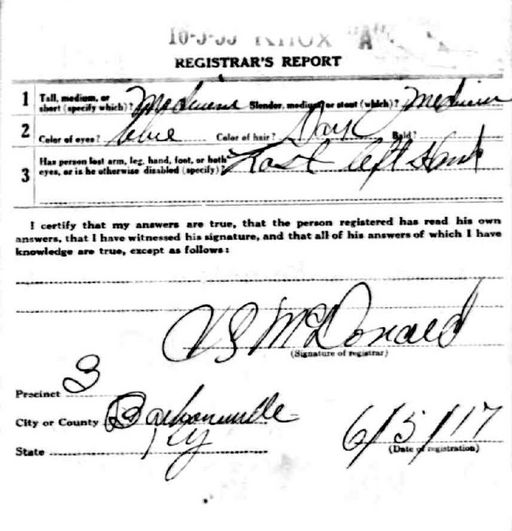 16-3-33 KNOX A
REGISTRAR'S REPORT
1 Tall, medium, or short (specify which)? Medium Slender, medium or stout (which)? Medium
2 Color of eyes? blue Color of hair? Dark Bald?
3 Has person lost arm, leg, hand, foot, or both eyes, or is he otherwise disabled (specify)? Lost left Hand
I certify that my answers are true, that the person registered has read his own
answers, that I have witnessed his signature, and that all of his answers of which I have
knowledge are true, except as follows:
McDonald
(Signature of registrar)
Precinct 3
City or County Barbourville
State Ky
6/5/17
(Date of registration)